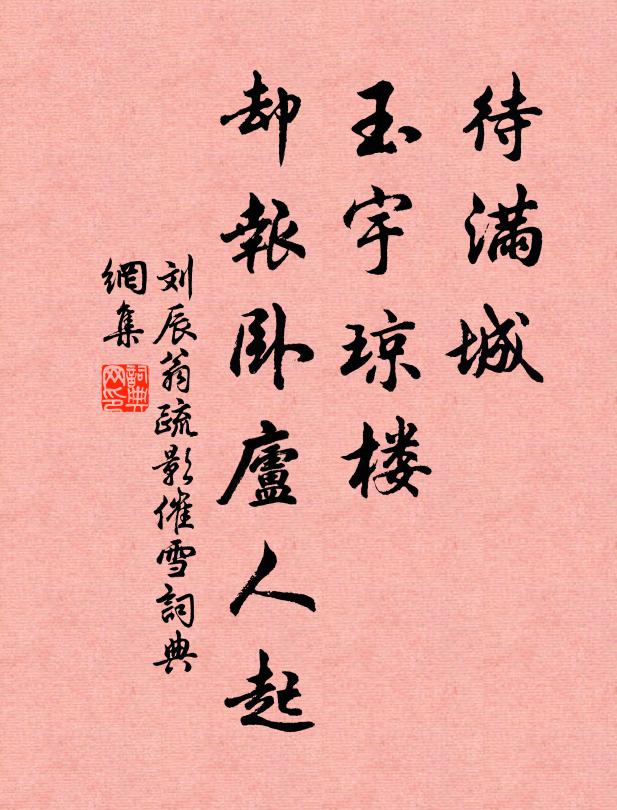 待满城
玉宇琼楼
却報卧廬人起
刘辰翁疏影催雪詞典
網集
詞典网印